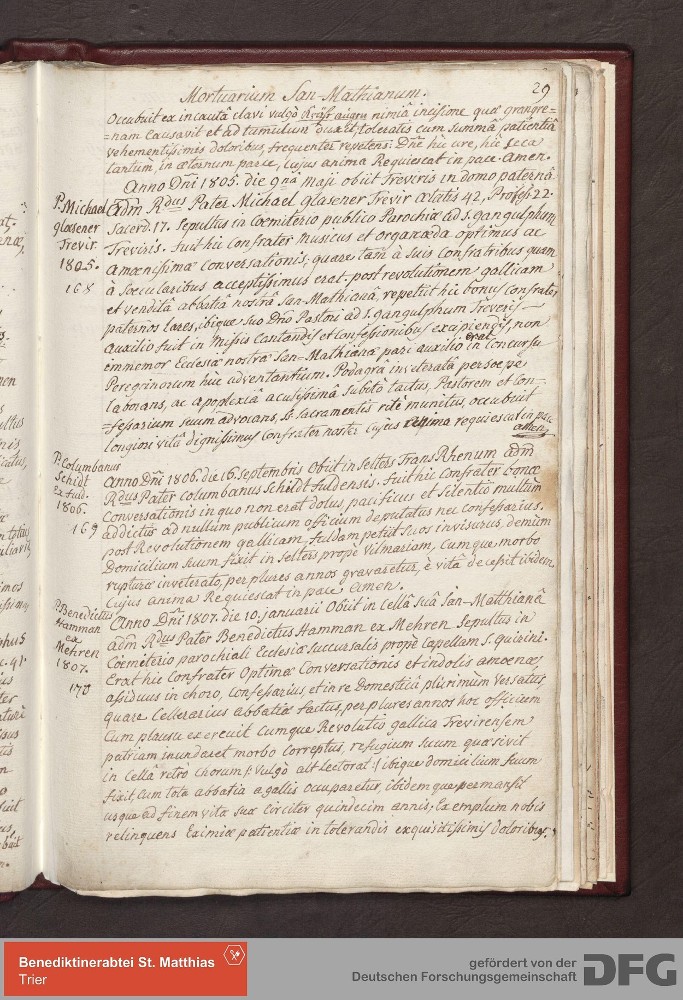 Mortuarium San-Mathianum. 29
Occubuit ex incautâ clavi vulgò Kräfr augen nimiâ incisione quæ grangre=
=nam causavit et ad tumulum duxit, toleratis cum summâ patientiâ
vehementissimis doloribus, frequenter repetens: Dñe hic ure, hic seca
tantum, in æternum parce, cujus anima Requiescat in pace. Amen.
P. Michael
glæsener
Trevir.
1805.
168
Anno Dñi 1805. die 9nâ Maji obiit Treviris in domo paternâ
Adm Rdus Pater Michael glæsener Trevir ætatis 42, Profess. 22.
Sacerd. 17. Sepultus in Cœmiterio publico Parochiæ ad S. gangulphum
Treviris. Fuit hic Confrater Musicus et organæda optimus ac
amœnissimæ Conversationis; quare tam à Suis Confratribus quam
à Sœcularibus acceptissimus erat. post revolutionem gallicam
et venditâ abbatiâ nostrâ San-Mathianâ, repetiit hic bonus Confrater
paternos lares, ibique suo Dño Pastori ad S. gangulphum Treveris
auxilio fuit in Missis Cantandis et Confessionibus excipiendis, non
emmemor Ecclesiæ nostræ San-Mathianæ pari auxilio erat in Concursu
Peregrinorum huc adventantium. Podagrâ inveteratâ persœpe
laborans, ac apoplexiâ acutissimâ subitò tactus, Pastorem et Con=
=fessarium suum advocans, SS. Sacramentis ritè munitus, occubuit
longiori vitâ dignissimus Confrater noster cujus anima requiescat in pace
amen.
P. Columbanus
Schidt
Ex fuld.
1806.
169
Anno Dñi 1806. die 16. Septembris Obiit in Selters Trans Rhenum adm
Rdus Pater Columbanus Scheidt fuldensis. Fuit hic Confrater bonæ
Conversationis in quo non erat dolus, pacificus et Silentio multum
addictus ad nullum publicum officium deputatus nec Confessarius.
post Revolutionem gallicam, fuldam petiit suos invisurus, demum
Domicilium suum fixit in Selters propè Vilmariam, Cumque morbo
rupturæ inveterato, per plures annos gravaretur, è vitâ decessit ibidem,
Cujus anima Requiescat in pace Amen.
P. Benedictus
Hamman
ex
Mehren
1807.
170
Anno Dñi 1807. die 10. januarii Obiit in Cellâ suâ San-Matthianâ
adm Rdus Pater Benedictus Hamman ex Mehren Sepultus in
Cœmeterio parochiali Ecclesiæ succursalis propè Capellam S. quirini.
Erat hic Confrater Optimæ Conversationis et indolis amœnæ,
assiduus in choro, Confessarius, et in re Domesticâ plurimum versatus,
quare Cellerarius abbatiæ factus, per plures annos hoc officium
Cum plausu exercuit Cumque Revolutio gallica Trevirensem
patriam inundaret morbo correptus, refugium suum quæsivit
in Cellâ retrò Chorum /: Vulgò alt Lectorat :/ ibique domicilium suum
fixit, Cum tota abbatia a gallis occuparetur, ibidemque permansit
usque ad finem vitæ suæ Circiter quindecim annis; Exemplum nobis
relinquens Eximiæ patientiæ in tolerandis exquisitissimis doloribus.
Benediktinerabtei St. Matthias
Trier
gefördert von der
Deutschen Forschungsgemeinschaft DFG